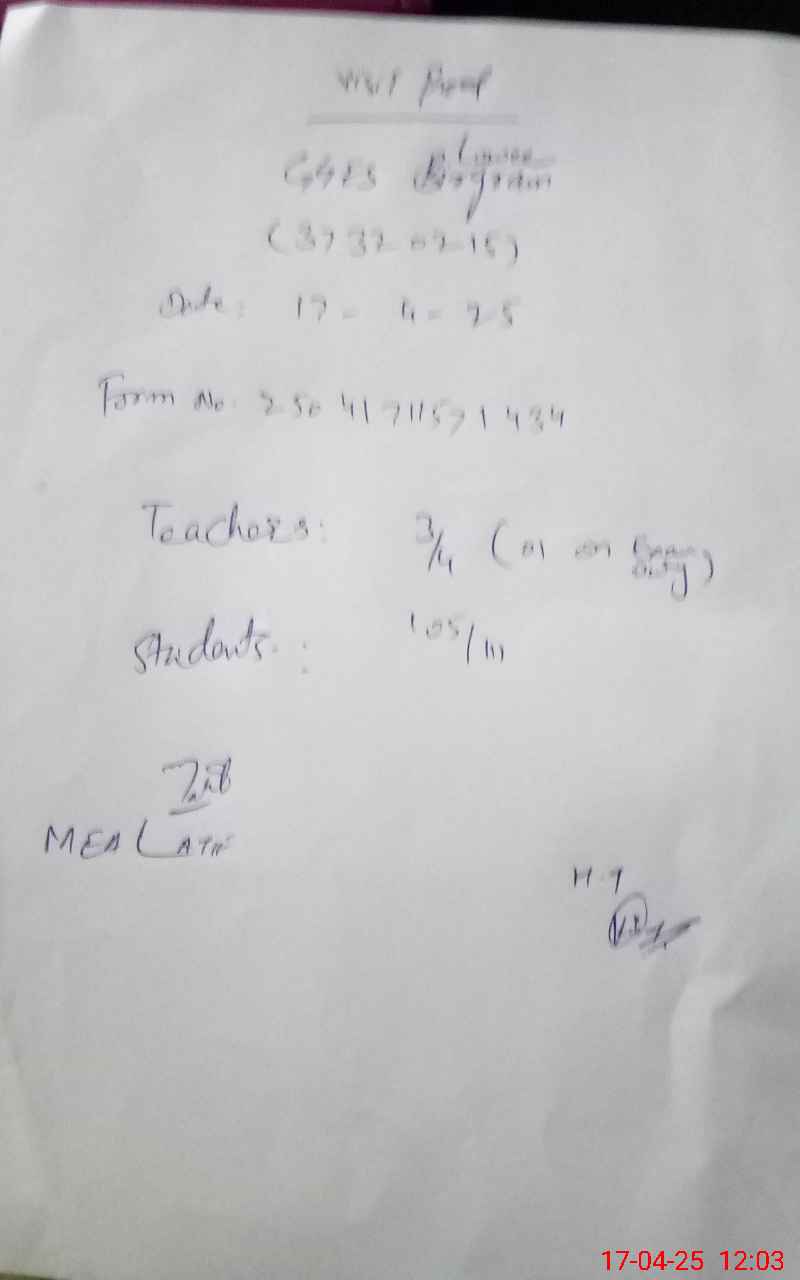 Visit Proof
GGES
(37320215)
Date: 17-4-25
Form No. 25041711571434
Teachers: 3/4 (01 on Exam Duty)
Students: 105/111
MEA (ATK
H.T
17-04-25 12:03